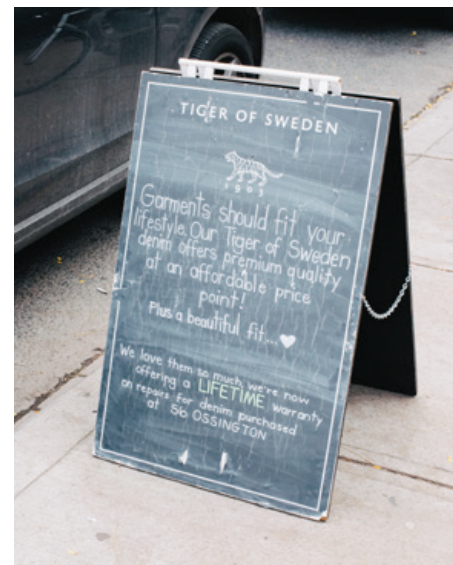 TIGER OF SWEDEN
1903
Garments should fit your
lifestyle. Our Tiger of Sweden
denim offers premium quality
at an affordable price
point!
Plus a beautiful fit...
We love them so much, we're now
offering a LIFETIME warranty
on repairs for denim purchased
at 56 OSSINGTON